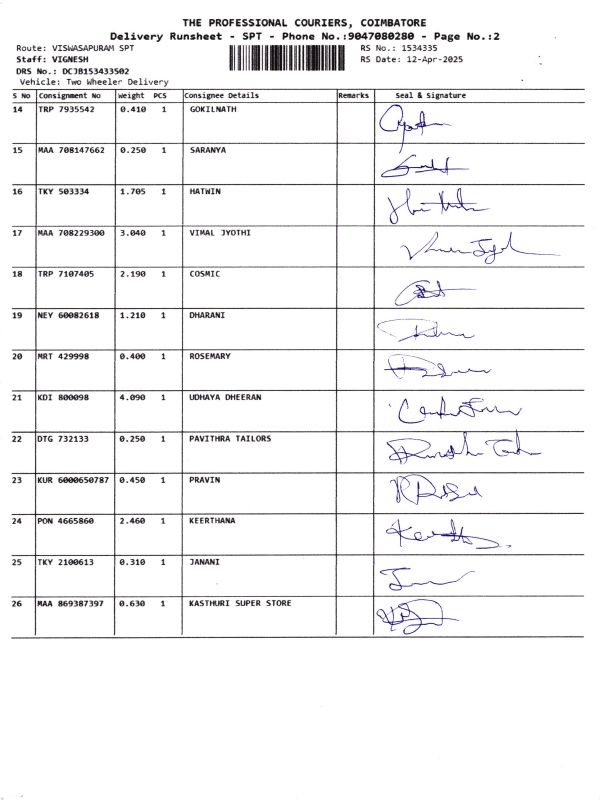 THE PROFESSIONAL COURIERS, COIMBATORE
Delivery Runsheet - SPT - Phone No.:9047080280 - Page No.:2
Route: VISWASAPURAM SPT RS No.: 1534335
Staff: VIGNESH RS Date: 12-Apr-2025
DRS No.: DCJB153433502
Vehicle: Two Wheeler Delivery
S No Consignment No Weight PCS Consignee Details Remarks Seal & Signature
14 TRP 7935542 0.410 1 GOKILNATH
15 MAA 708147662 0.250 1 SARANYA
16 TKY 503334 1.705 1 HATWIN
17 MAA 708229300 3.040 1 VIMAL JYOTHI
18 TRP 7107405 2.190 1 COSMIC
19 NEY 60082618 1.210 1 DHARANI
20 MRT 429998 0.400 1 ROSEMARY
21 KDI 800098 4.090 1 UDHAYA DHEERAN
22 DTG 732133 0.250 1 PAVITHRA TAILORS
23 KUR 6000650787 0.450 1 PRAVIN
24 PON 4665860 2.460 1 KEERTHANA
25 TKY 2100613 0.310 1 JANANI
26 MAA 869387397 0.630 1 KASTHURI SUPER STORE